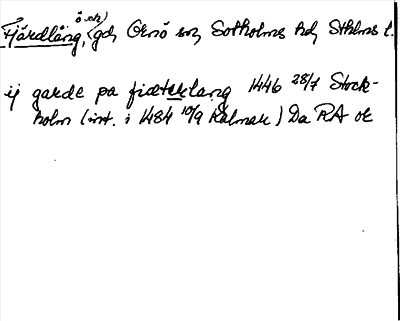 ö och)
Fjärdlång, (gd, Ornö sn, Sotholms hd, Sthlms l.
ij garde pa fiæterlang 1446 28/7 Stock-
holm (int. i 1484 10/9 Kalmar) Da RA or